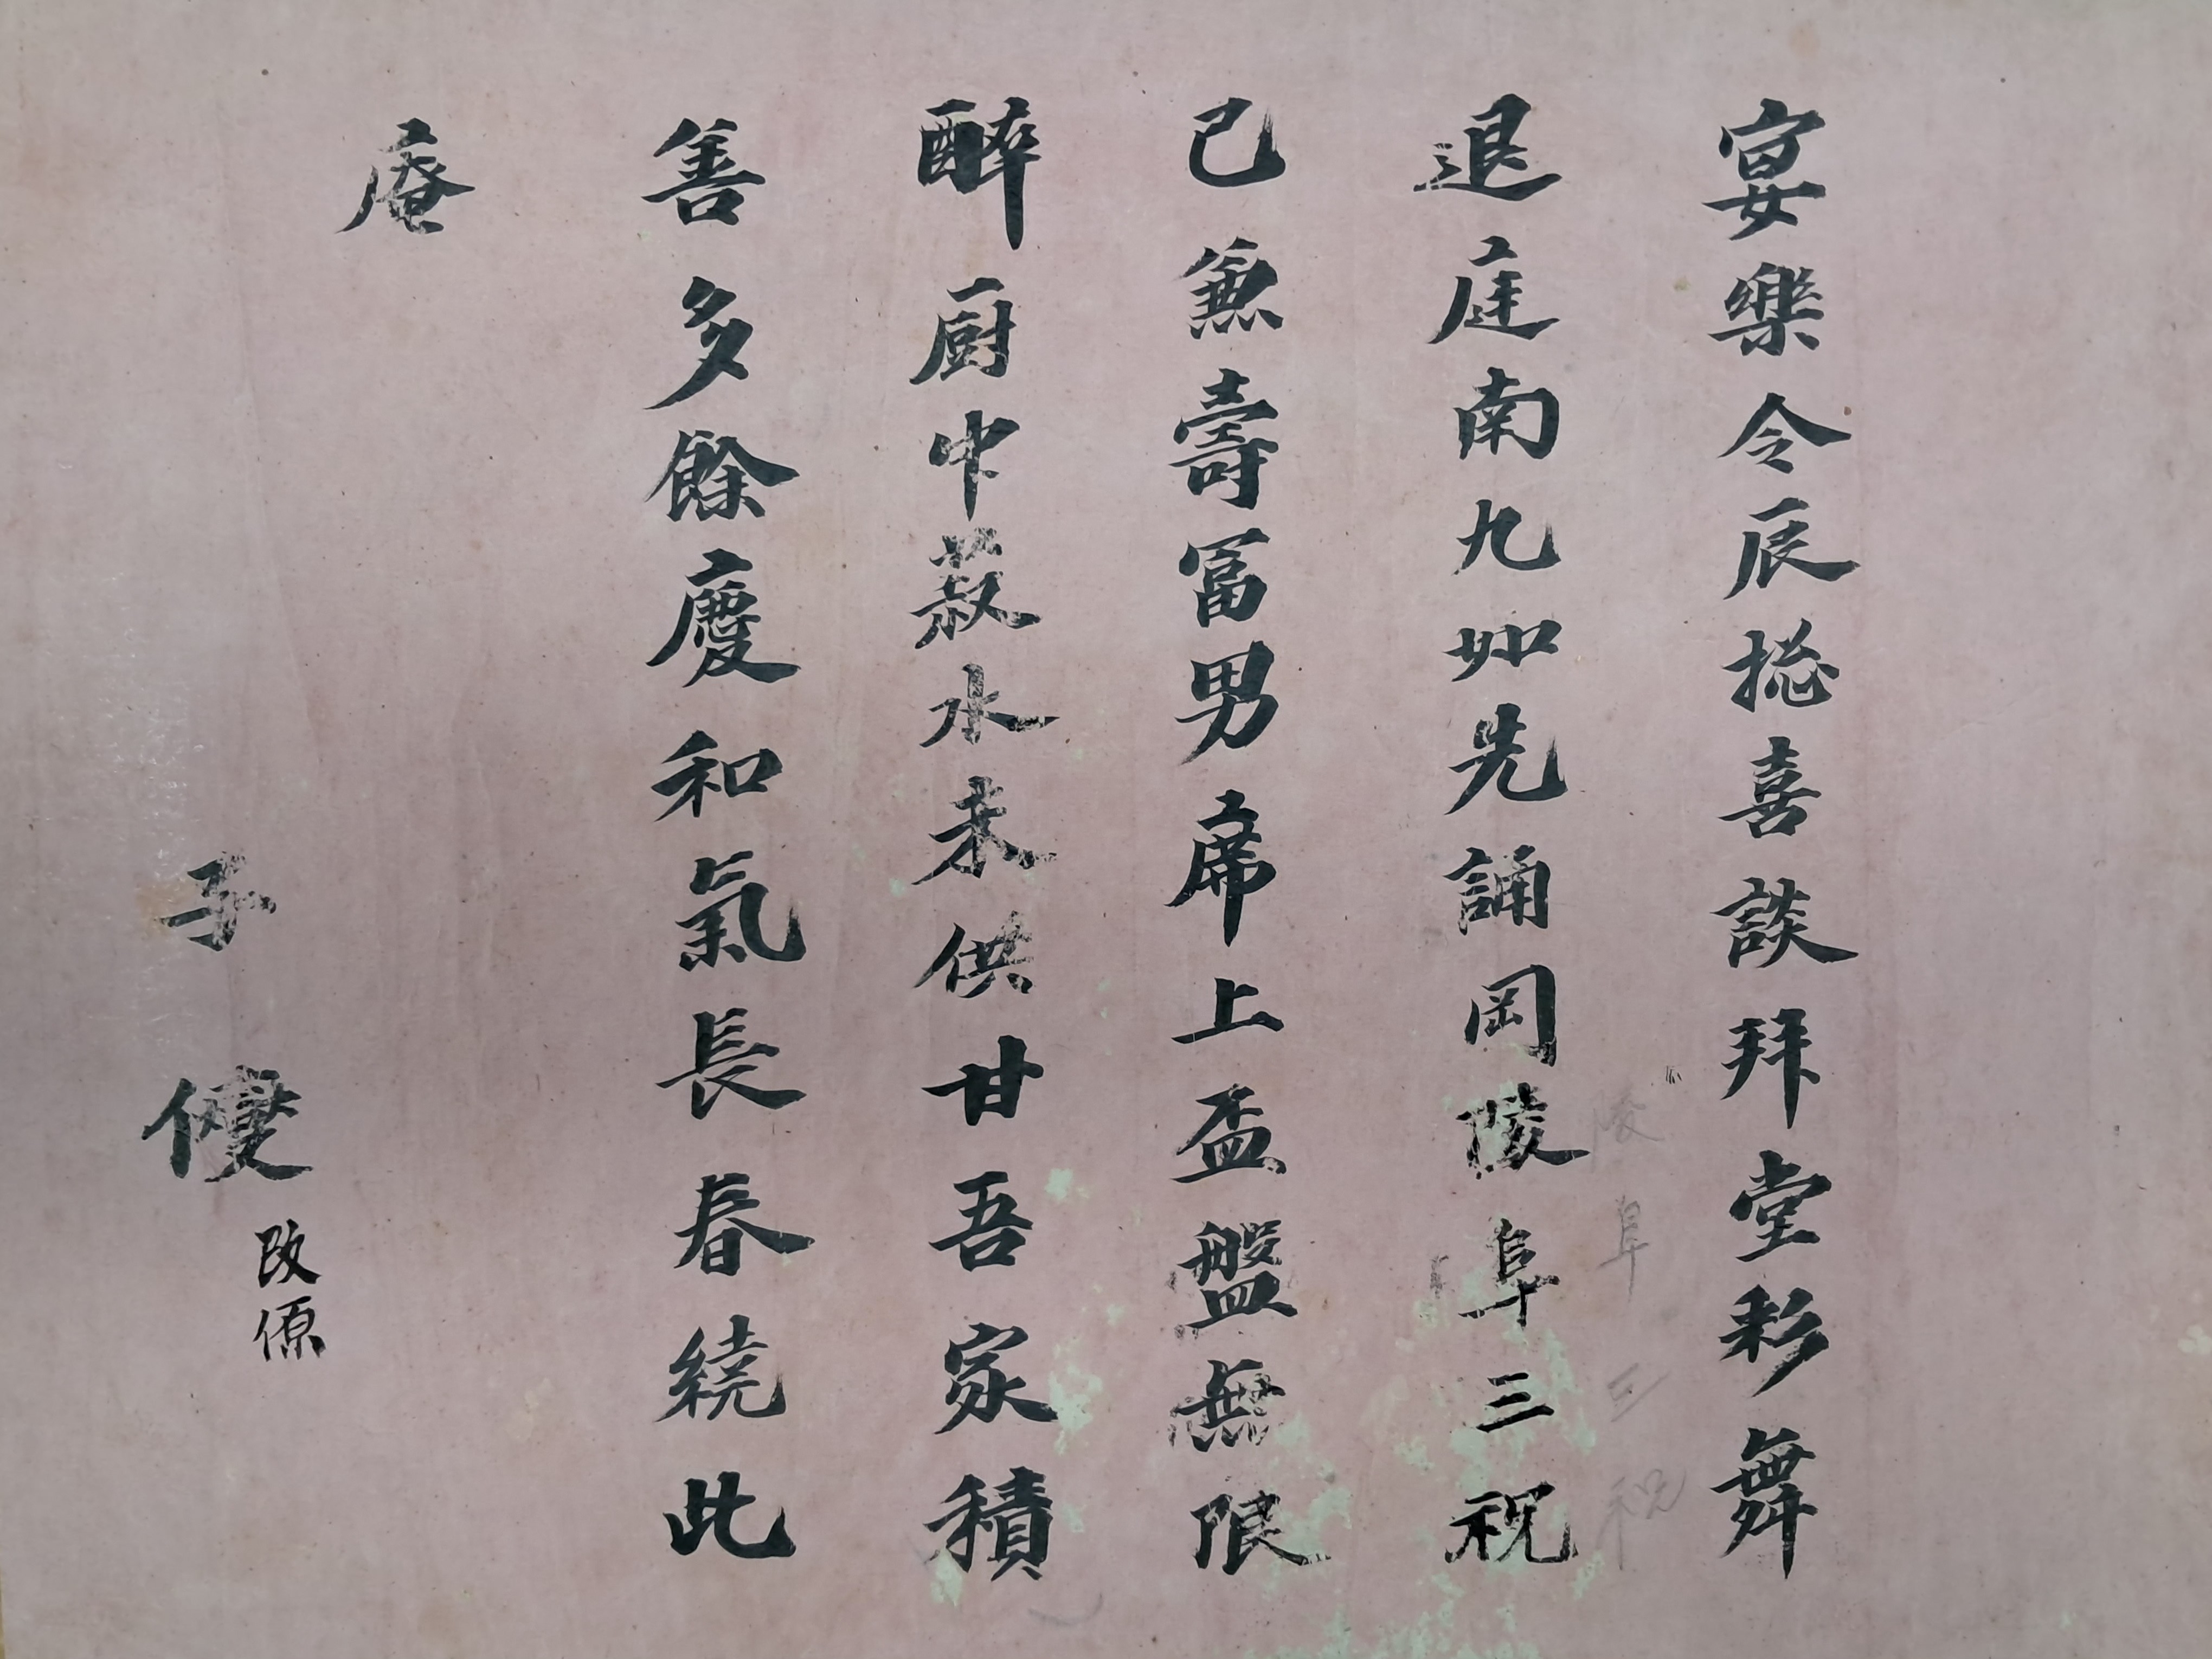 宴樂令辰捴喜談拜堂彩舞
退庭南九如先誦岡陵阜三祝
已兼壽冨男席上盃盤無限
醉厨中菽水未供甘吾家積
善多餘慶和氣長春繞此
庵
子
改原
陵阜三祝